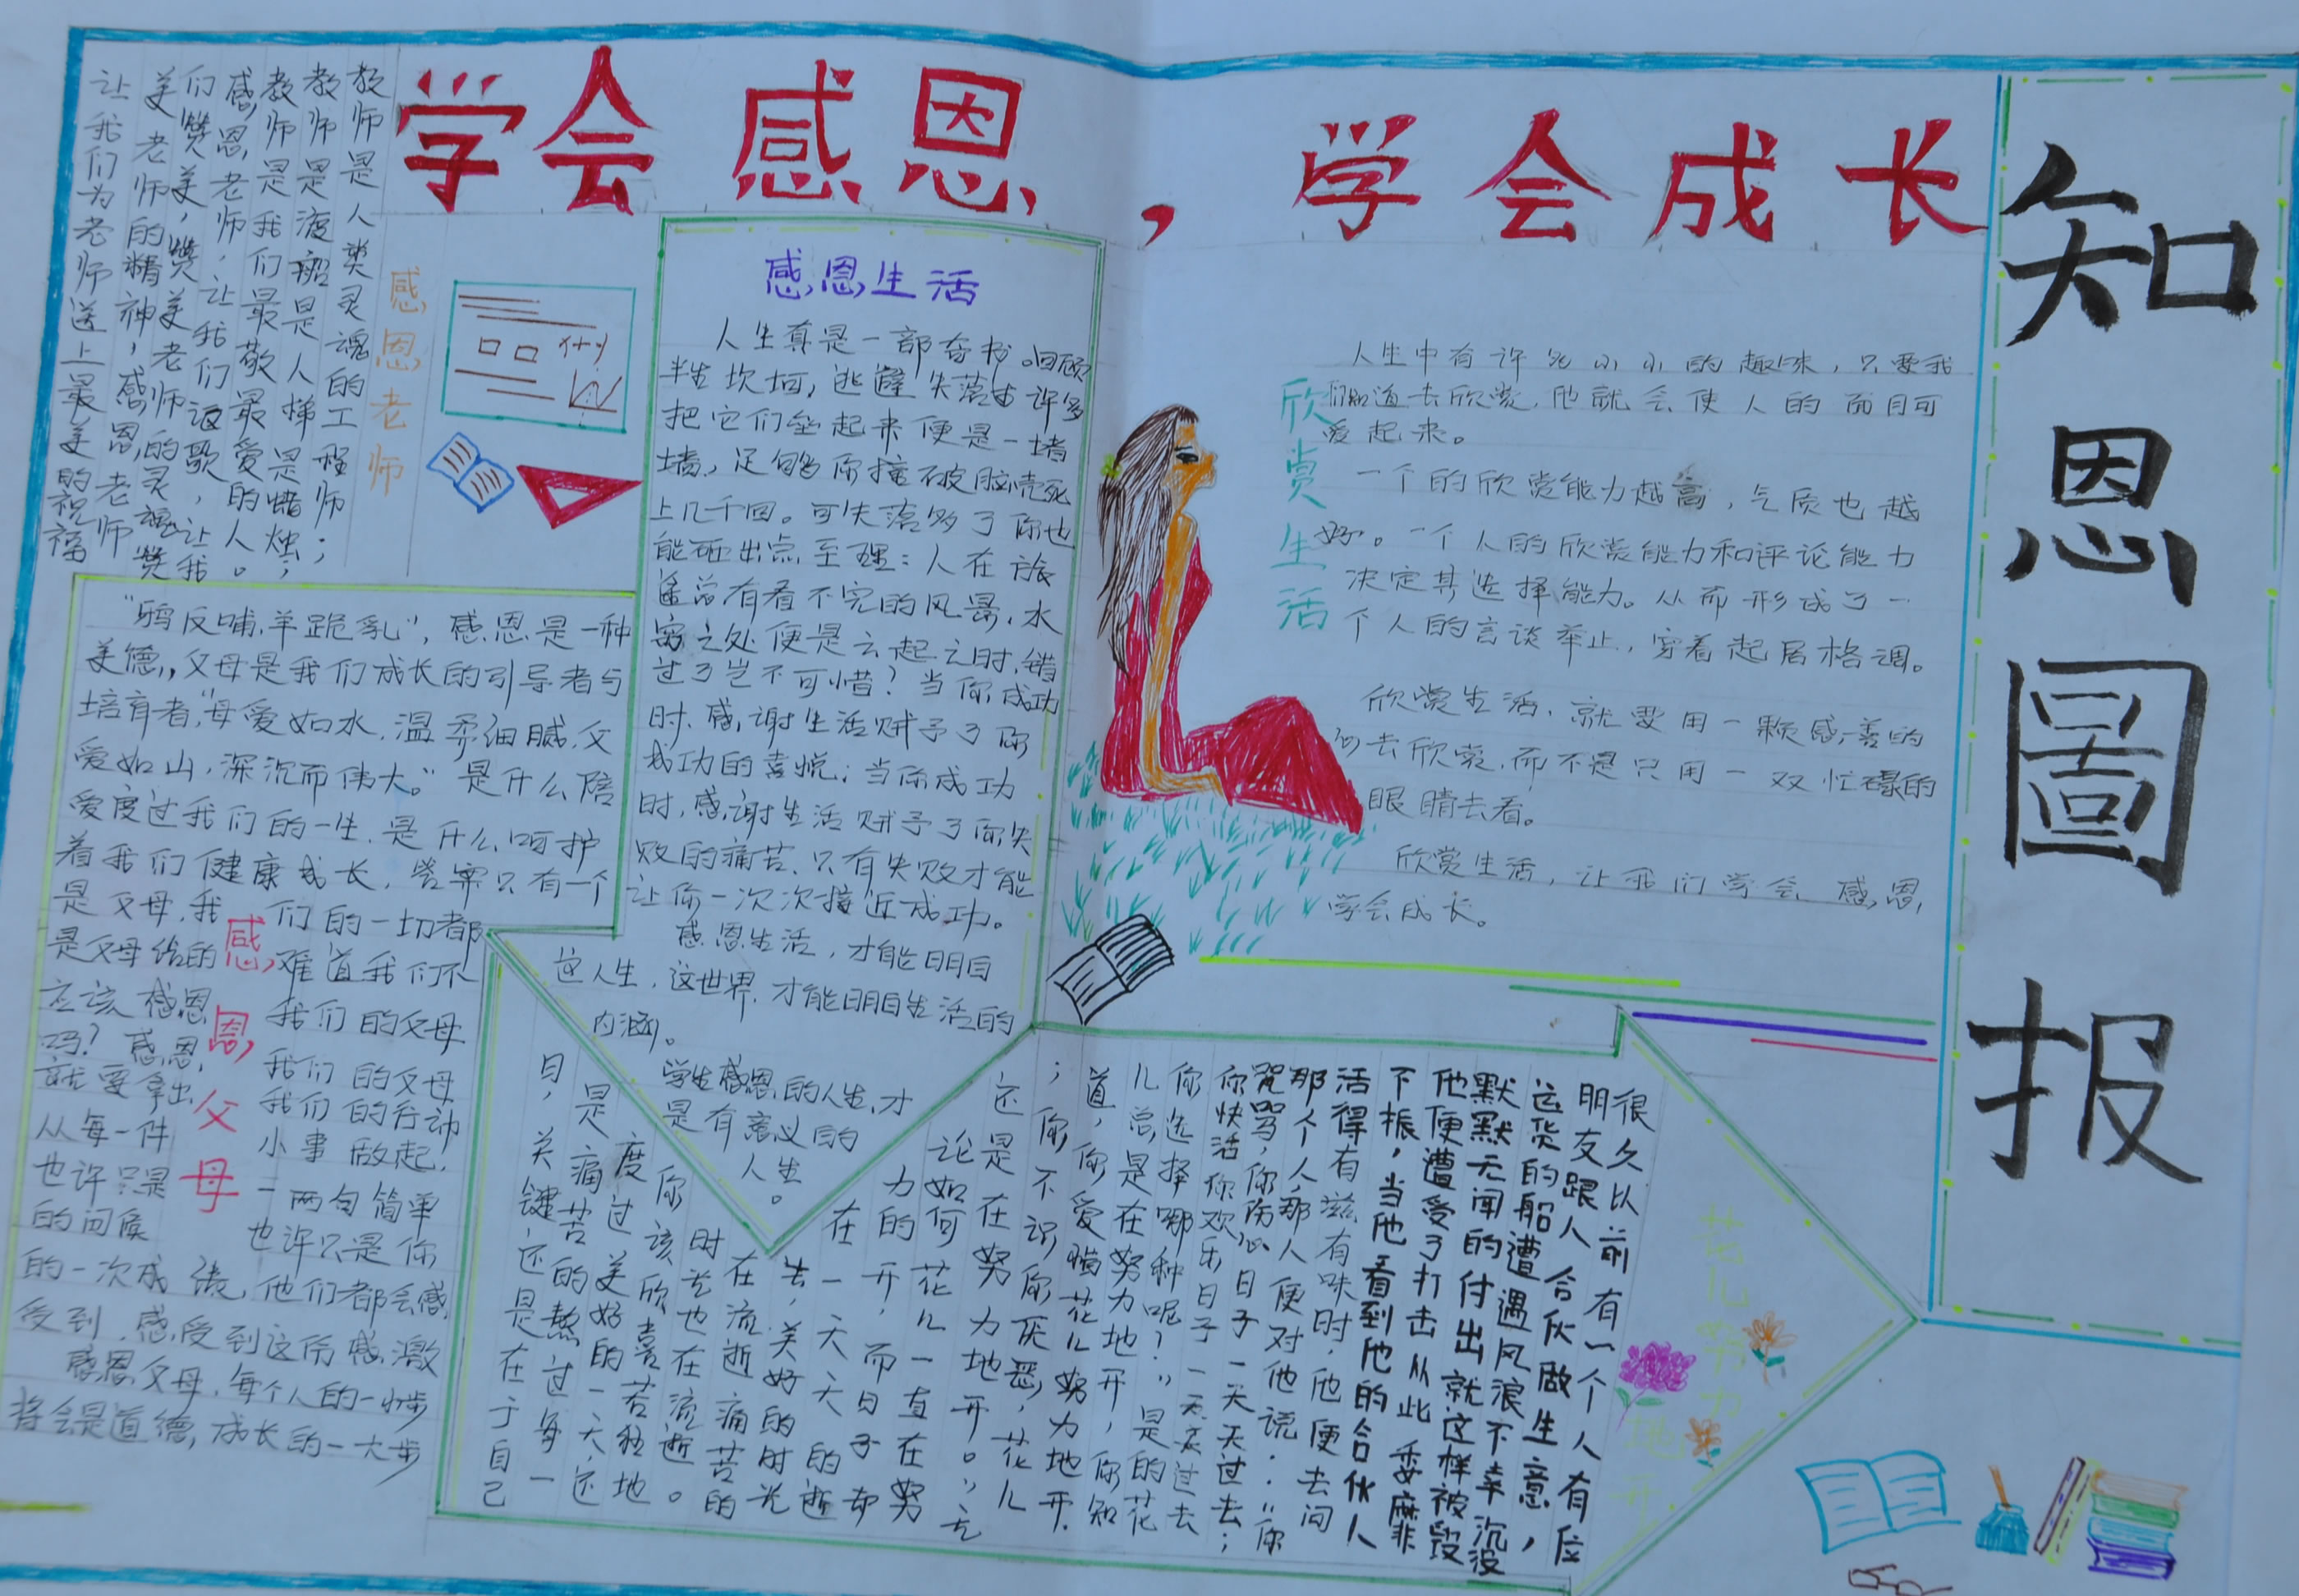 学会感恩，学会成长
知恩圖报
感恩老师
教师是人类灵魂的工程师；
教师是渡船是人梯是蜡烛；
教师是我们最敬最爱的人。
感恩老师，让我们
们赞美，赞美老师的灵魂
美老师的精神，感恩老师
让我们为老师送上最美的祝福
感恩生活
人生真是一部奇书。回顾
半生坎坷，逃避失落
把它们垒起来便是一堵
墙，足够你撞破脑壳死
上几千回。可失落多了你也
能砸出点至理：人在旅
途总有看不完的风景，水
穷之处便是云起之时，错
过了岂不可惜？当你成功
时，感谢生活赋予了你
成功的喜悦；当你成功
时，感谢生活赋予了你失
败的痛苦，只有失败才能
让你一次次接近成功。
感恩生活，才能明白
这人生，这世界，才能明白生活的
内涵。
学生感恩的人生，才
是有意义的
人生。
欣赏生活
人生中有许多小小的趣味，只要我
们知道去欣赏，他就会使人的面目可
爱起来。
一个的欣赏能力越高，气质也越
好。一个人的欣赏能力和评论能力
决定其选择能力。从而形成了一
个人的言谈举止，穿着起居格调。
欣赏生活，就要用一颗感善的
去欣赏，而不是只用一双忙碌的
眼睛去看。
欣赏生活，让我们学会感恩，
学会成长。
“鸦反哺，羊跪乳”，感恩是一种
美德，父母是我们成长的引导者与
培育者，“母爱如水，温柔细腻，父
爱如山，深沉而伟大。”是什么陪
爱度过我们的一生，是什么呵护
着我们健康成长，答案只有一个
是父母，我们的一切都
是父母给的，难道我们不
应该感恩我们的父母
吗？感恩我们的父母
就要拿出我们的行动
从每一件小事做起，
也许只是一两句简单
的问候也许只是你
的一次成绩，他们都会感
受到，感受到这份感激
感恩父母，每个人的一小步
将会是道德，成长的一大步
感恩父母
花儿努力地开
很久以前有一个人有位
朋友跟人合伙做生意，
运货的船遭遇风浪不幸沉没
默默无闻的付出就这样被毁
他便遭受了打击从此委靡
下振，当他看到他的合伙人
活得有滋有味时，他便去问
那个人，那人便对他说：“你
咒骂，你伤心日子一天天过去；
你快活你欢乐日子一天天过去
你选择哪种呢？”是的花
儿总是在努力地开，你知
道，你爱惜花儿努力地开
；你不识你厌恶，花儿
还是在努力地开。”无
论如何花儿一直在努
力的开，而日子却
在一天天的逝
去，美好的时光
在流逝痛苦的
时光也在流逝。
你该欣喜若狂地
度过美好的一天，还
是痛苦的熬过每一
日，关键还是在于自己